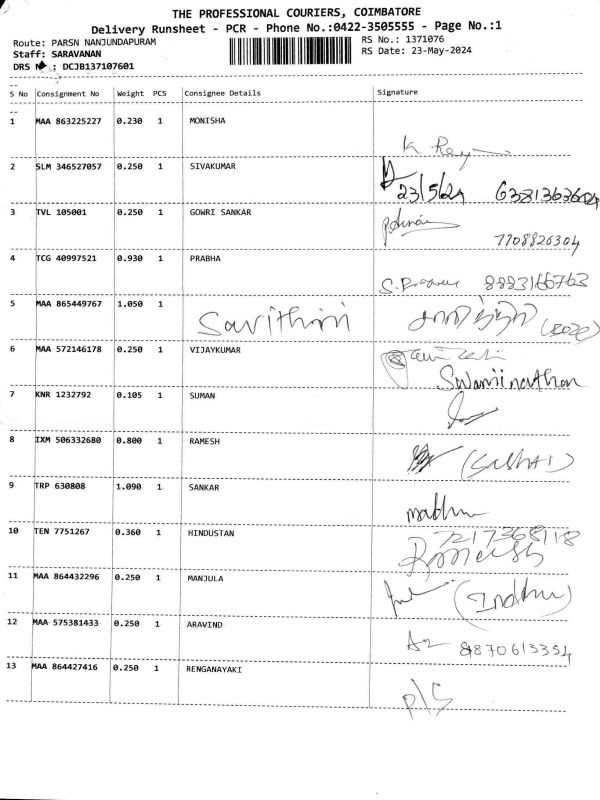 THE PROFESSIONAL COURIERS, COIMBATORE
Delivery Runsheet - PCR - Phone No.:0422-3505555 - Page No.:1
Route: PARSN NANJUNDAPURAM RS No.: 1371076
Staff: SARAVANAN RS Date: 23-May-2024
DRS No.: DCJB137107601
S No Consignment No Weight PCS Consignee Details Signature
1 MAA 863225227 0.230 1 MONISHA
2 SLM 346527057 0.250 1 SIVAKUMAR
23/5/24 6381363604
3 TVL 105001 0.250 1 GOWRI SANKAR
7708826304
4 TCG 40997521 0.930 1 PRABHA
8883166763
5 MAA 865449767 1.050 1
Savithiri சாவித்திரி
6 MAA 572146178 0.250 1 VIJAYKUMAR
Swaminathan
7 KNR 1232792 0.105 1 SUMAN
8 IXM 506332680 0.800 1 RAMESH
9 TRP 630808 1.090 1 SANKAR
madhu
10 TEN 7751267 0.360 1 HINDUSTAN 7217368118
Ramesh
11 MAA 864432296 0.250 1 MANJULA
(Indhu)
12 MAA 575381433 0.250 1 ARAVIND
8870613354
13 MAA 864427416 0.250 1 RENGANAYAKI
P/S